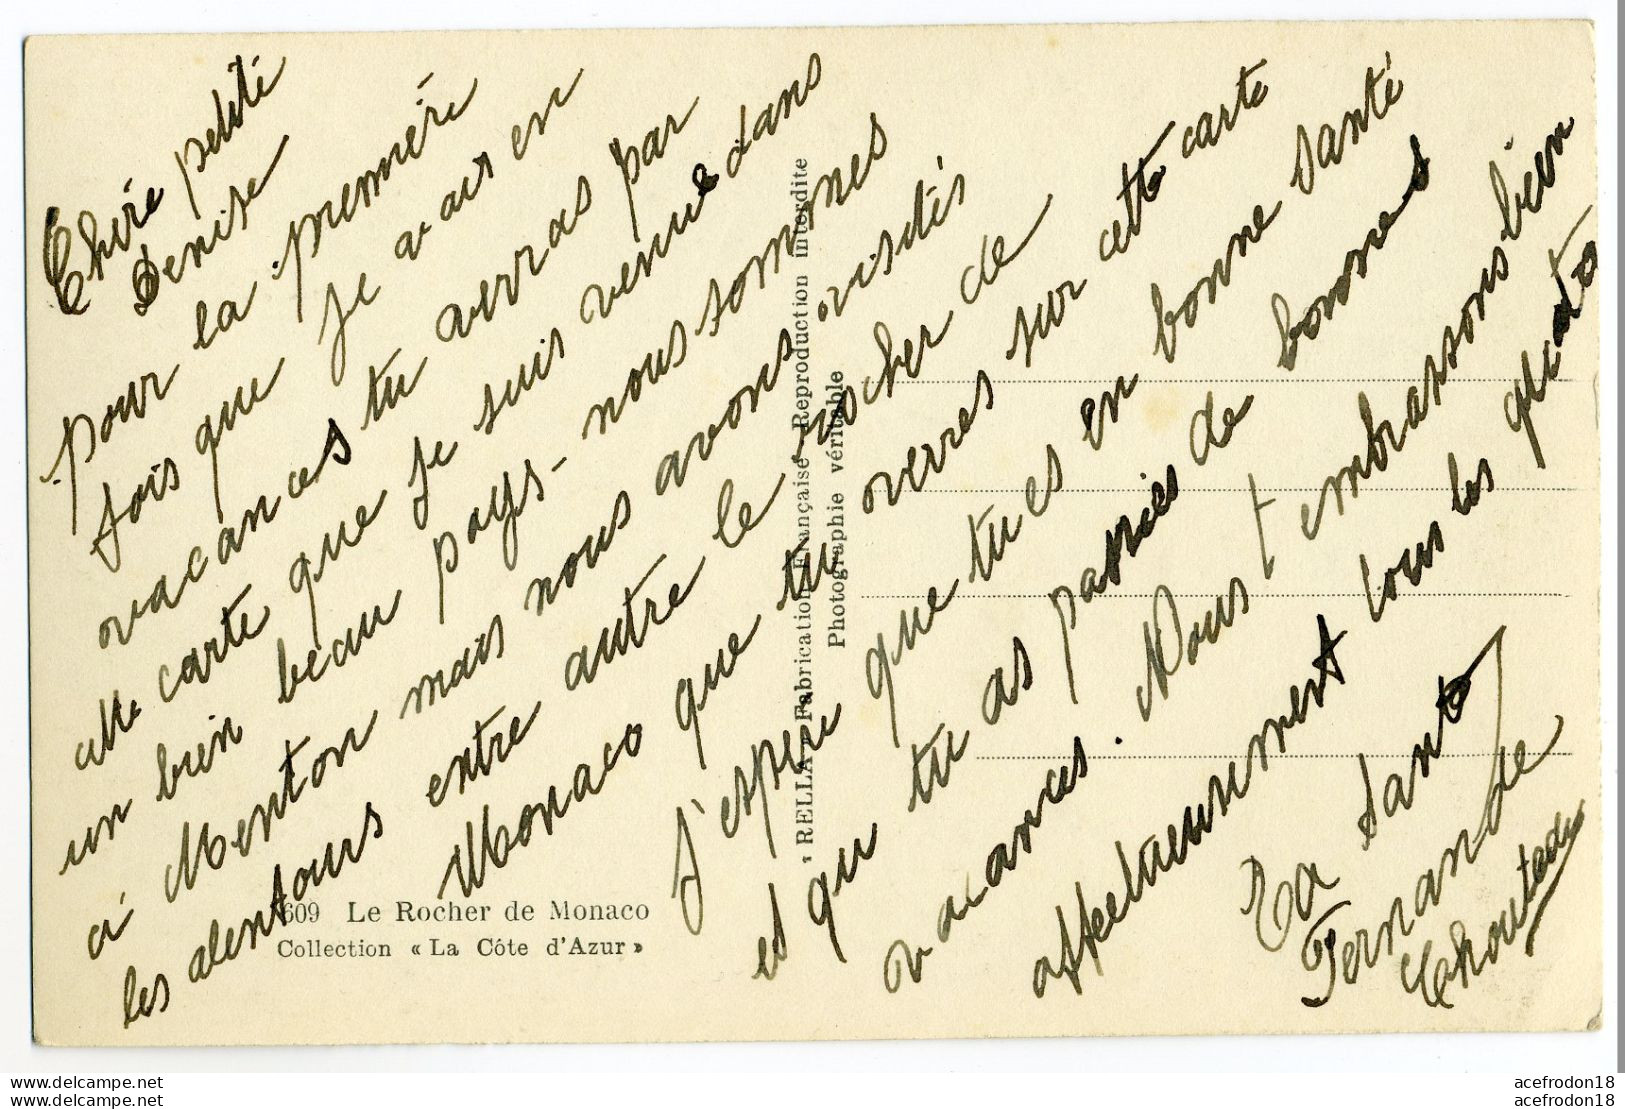 Chère petite
Denise
pour la première
fois que je vais en
vacances tu verras par
cette carte que je suis venue dans
un bien beau pays - nous sommes
à Menton mais nous avons visités
les alentours entre autre le rocher de
Monaco que tu verres sur cette carte
J'espère que tu es en bonne santé
et que tu as passées de bonnes
vacances. Nous t'embrassons bien
affectueusement tous les quatre
Ta Tante
Fernande
609 Le Rocher de Monaco
Collection « La Côte d'Azur »
RELLA - Fabrication Française - Reproduction interdite
Photographie véritable
www.delcampe.net
www.delcampe.net
acefrodon18
acefrodon18